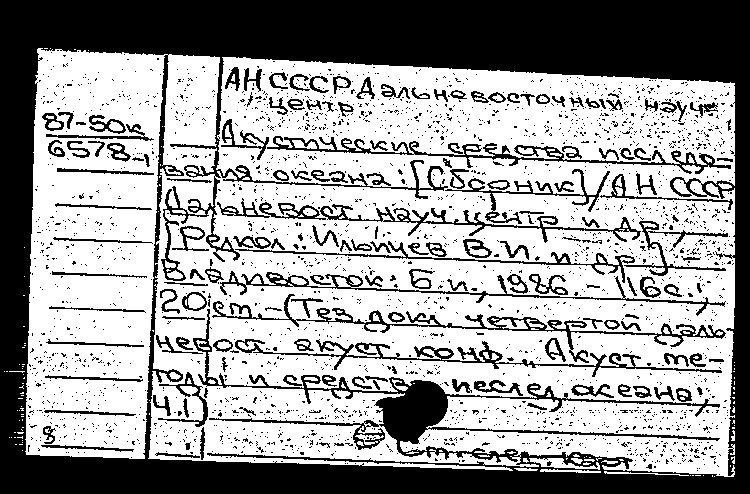 АН СССР. Дальневосточный науч=
центр.
87-50к
6578-1
Акустические средства исследо=
вания океана: [Сборник] / АН СССР
Дальневост. науч. центр и др.;
[Редкол.: Ильичев В.И. и др.] -
Владивосток: Б.и., 1986. - 116с.;
20 см. - (Тез. докл. четвертой даль-
невост. акуст. конф. „Акуст. ме-
тоды и средства исслед. океана;
Ч.1)
См. след. карт.
8